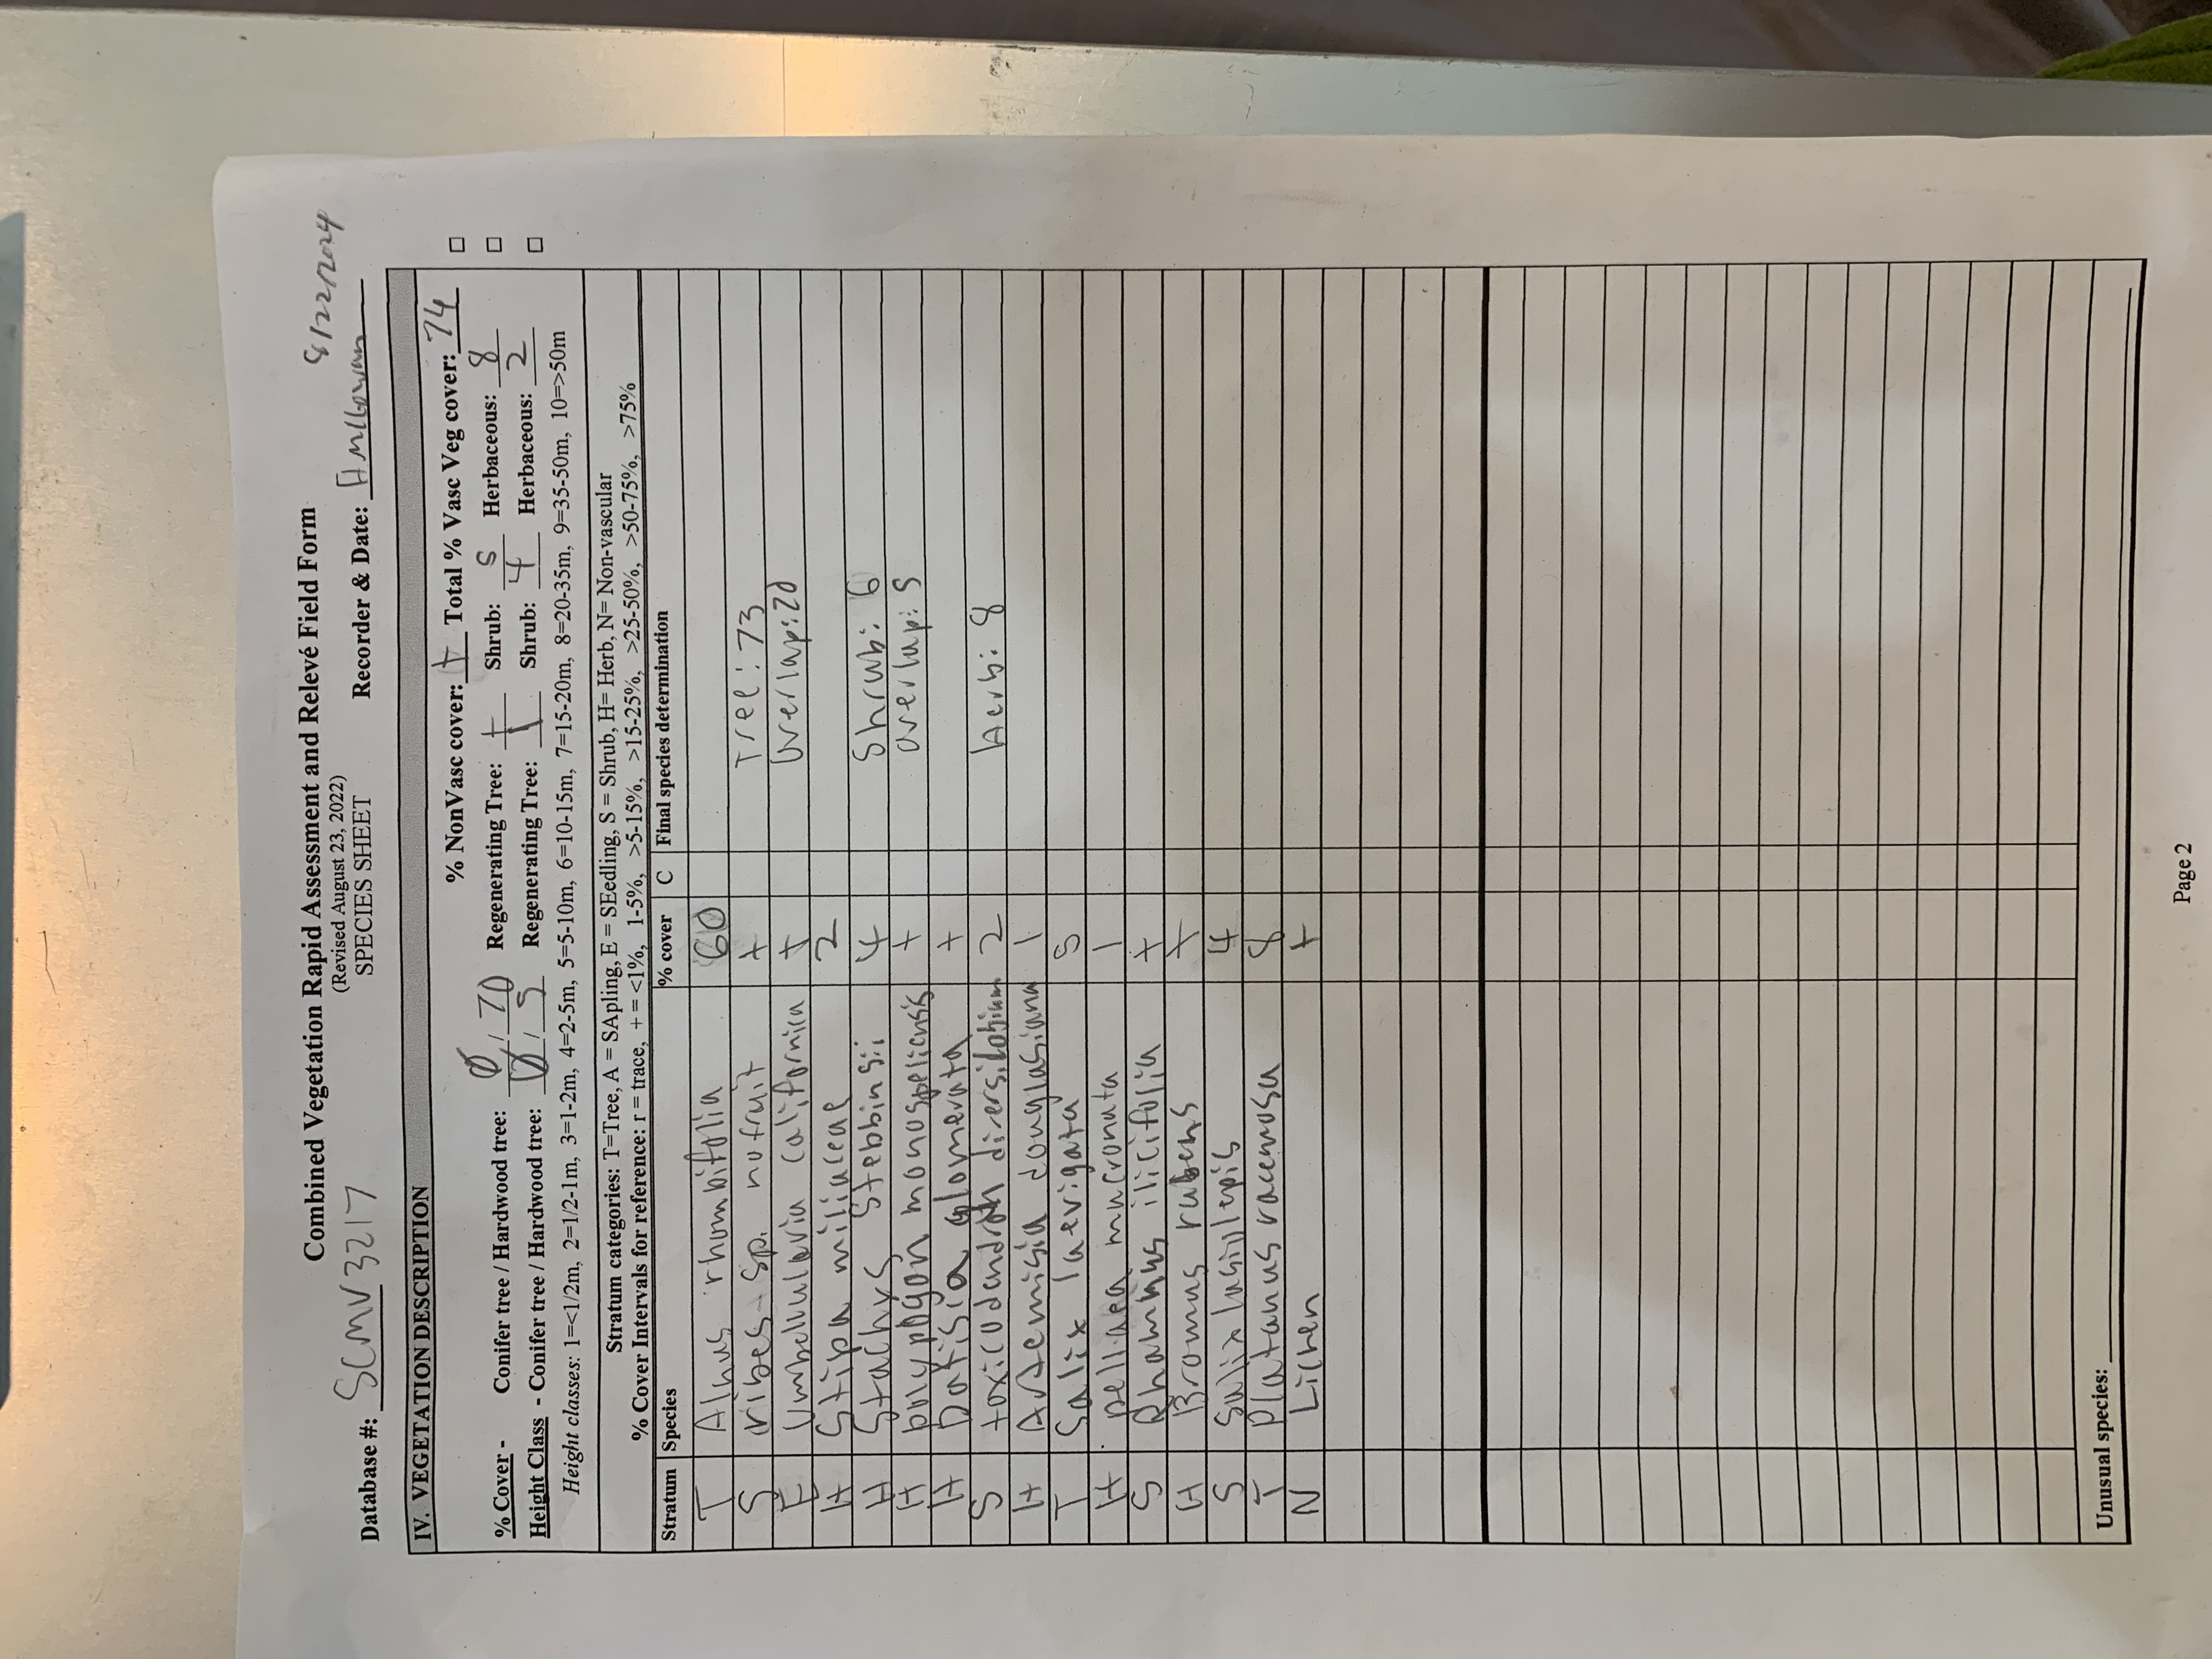 Combined Vegetation Rapid Assessment and Relevé Field Form
(Revised August 23, 2022)
SPECIES SHEET
Database #: SCMV3217 Recorder & Date: 8/22/2024
IV. VEGETATION DESCRIPTION
% NonVasc cover: + Total % Vasc Veg cover: 74 □
% Cover - Conifer tree / Hardwood tree: 0 / 70 Regenerating Tree: + Shrub: 5 Herbaceous: 8 □
Height Class - Conifer tree / Hardwood tree: 0 / 5 Regenerating Tree: 1 Shrub: 4 Herbaceous: 2 □
Height classes: 1=<1/2m, 2=1/2-1m, 3=1-2m, 4=2-5m, 5=5-10m, 6=10-15m, 7=15-20m, 8=20-35m, 9=35-50m, 10=>50m
Stratum categories: T=Tree, A = SApling, E = SEedling, S = Shrub, H= Herb, N= Non-vascular
% Cover Intervals for reference: r = trace, + = <1%, 1-5%, >5-15%, >15-25%, >25-50%, >50-75%, >75%
Stratum Species % cover C Final species determination
T Alnus rhombifolia 60
S ribes sp. no fruit + Tree: 73
E Umbellularia californica + Overlap: 20
H Stipa miliacea 2
H Stachys Stebbinsii 4 Shrub: 6
H polypogon monospeliensis + overlap: 5
H Datisia glomerata +
S toxicodendron diersilobium 2 Herb: 8
H Artemisia douglasiana 1
T Salix laevigata 5
H pellaea mucronata 1
S Rhamnus ilicifolia +
H Bromus rubens +
S Salix lasiolepis 4
T Platanus racemosa 8
N Lichen +
Unusual species:
Page 2